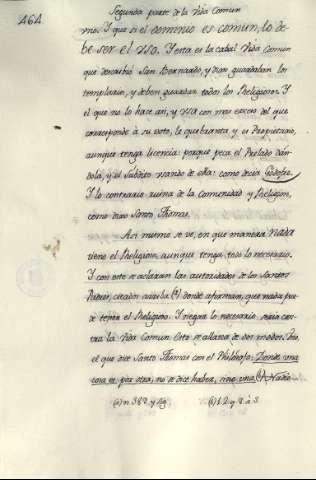 464
Segunda parte de la Vida Comun
mo. Y que si el dominio es comun, lo de-
be ser el uso. Y esta es la cabal Vida Comun
que describió San Bernardo, y que guardaban los
templarios, y deben guardar todos los Religiosos. Y
el que no lo hace asi, y usa con mas exceso del que
corresponde à su voto, le quebranta y es Proprietario,
aunque tenga licencia: porque peca el Prelado dán-
dola, y el subdito usando de ella: como decia
Y lo contrario ruina de la Comunidad y Religion,
como dixo Santo Thomas.
Asi mismo se ve, en que manera nada
tiene el Religioso, aunque tenga todo lo necesario.
Y con esto se aclaran las autoridades de los Santos
Padres, citados arriba (a) donde afirman, que nada pue-
de tener el Religioso. Y negar lo necesario, seria con-
tra la Vida Comun. Esto se allana de dos modos. Uno,
el que dice Santo Thomas con el Philosofo: Donde una
cosa es por otra, no se dice haber, sino una (b) Nadie
(a) n. 382. y sig. (b) 1. 2. q. 8. à 3.